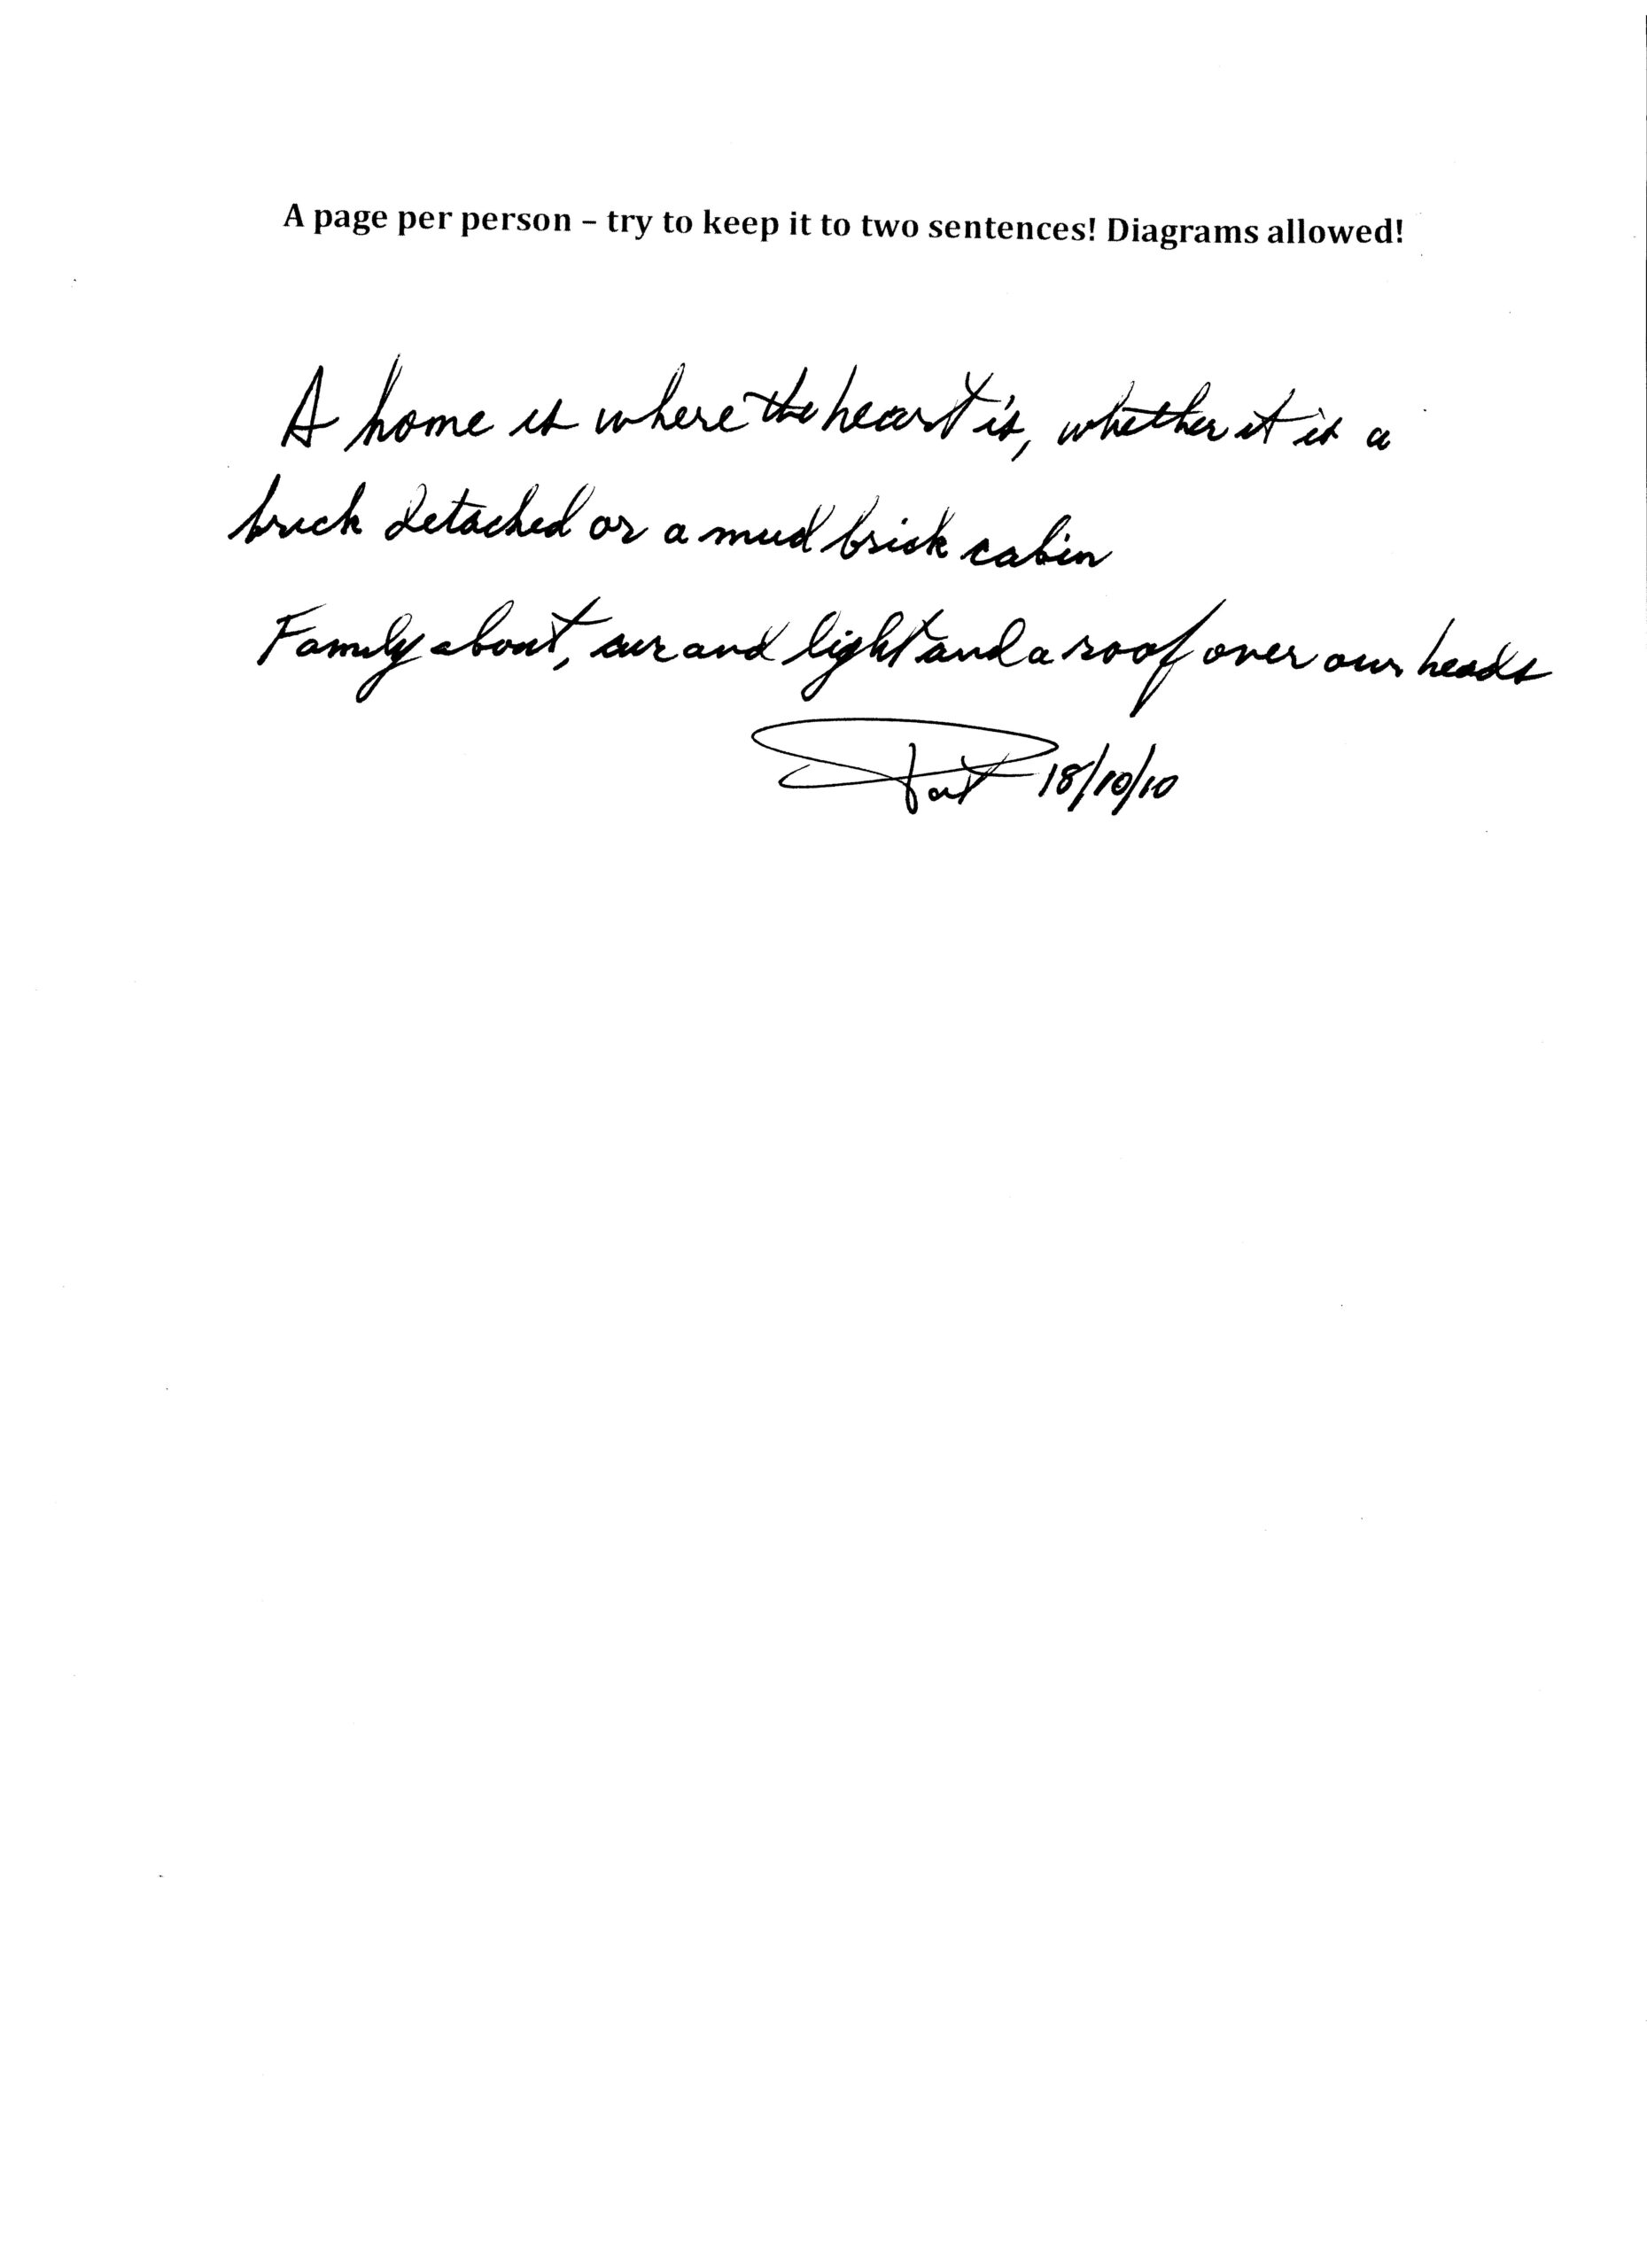 A page per person – try to keep it to two sentences! Diagrams allowed!
A home is where the heart is, whether it is a
brick detached or a mud brick cabin
Family about, air and light and a roof over our heads
Pat 18/10/10